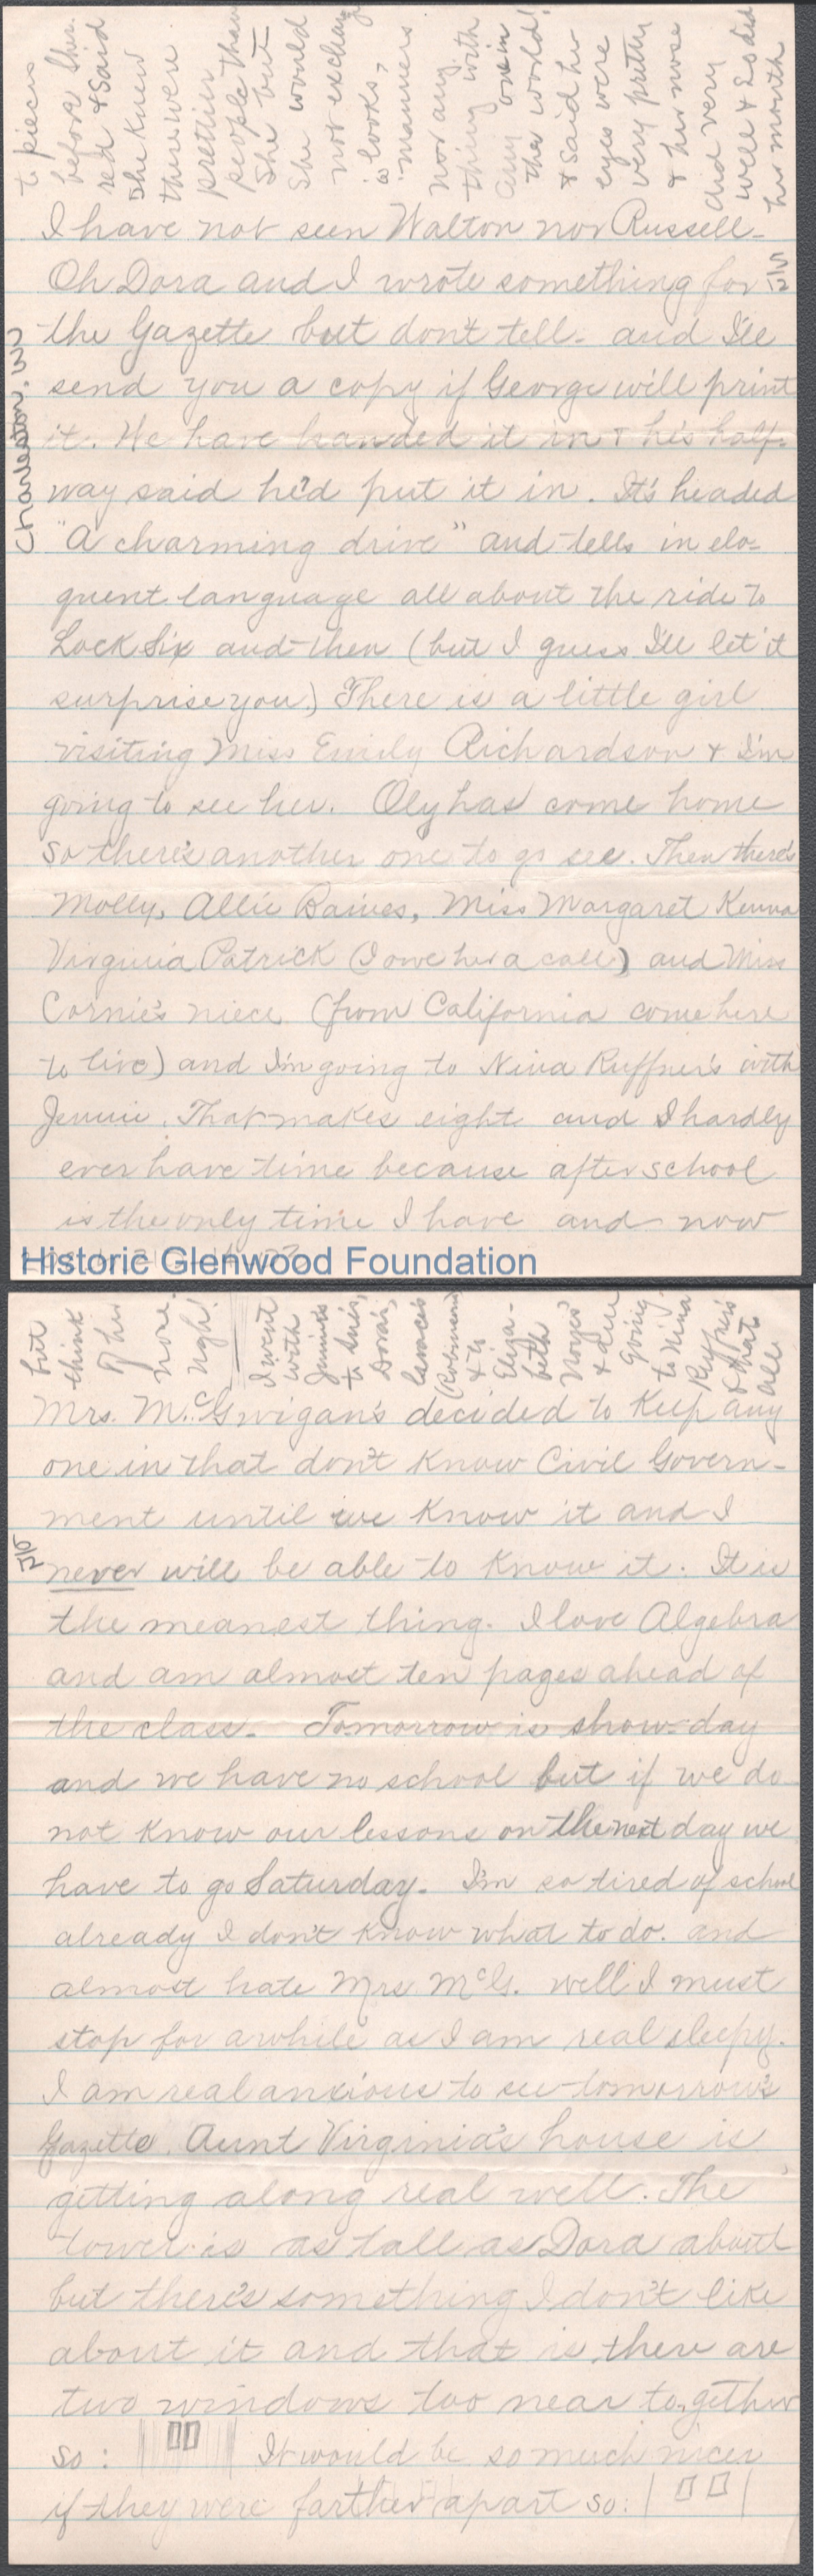 to pieces
before Sher
red & said
she knew
there were
prettier
people than
she but
she would
not exchang
e looks,
manners
nor any
thing with
any one in
the world!
& said her
eyes were
very pretty
& her nose
did very
well & so did
her mouth
I have not seen Walton nor Russell-
Oh Dora and I wrote something for
the Gazette but don't tell- and I'll
send you a copy if George will print
it. We have handed it in & he's half-
way said he'd put it in. It's headed
"A charming drive" and tells in elo-
quent language all about the ride to
Lock Six and then (but I guess I'll let it
surprise you.) There is a little girl
visiting Miss Emily Richardson & I'm
going to see her. Oly has come home
so there's another one to go see. Then there's
Molly, Allie Baines, Miss Margaret Kenna
Virginia Patrick (I owe her a call) and Miss
Cornie's niece (from California come here
to live) and I'm going to Nina Ruffner's with
Jennie. That makes eight and I hardly
ever have time because after school
is the only time I have and now
Charleston. W
5/12
Historic Glenwood Foundation
but
think
of her
nose.
Ugh!
I went
with
Jennie
to
Dora's,
(Robinson)
& to
Eliza-
beth
Noyes'
& are
going
to Nina
Ruffner's
& that's
all
Mrs. McGwigan's decided to keep any
one in that don't know Civil Govern-
ment until we know it and I
never will be able to know it. It is
the meanest thing. I love Algebra
and am almost ten pages ahead of
the class. Tomorrow is show-day
and we have no school but if we do
not know our lessons on the next day we
have to go Saturday. I'm so tired of school
already I don't know what to do. and
almost hate Mrs McG. well I must
stop for awhile as I am real sleepy.
I am real anxious to see tomorrow's
Gazette. Aunt Virginia's house is
getting along real well. The
tower is as tall as Dora about
but there's something I don't like
about it and that is, there are
two windows too near together
so: It would be so much nicer
if they were farther apart so: